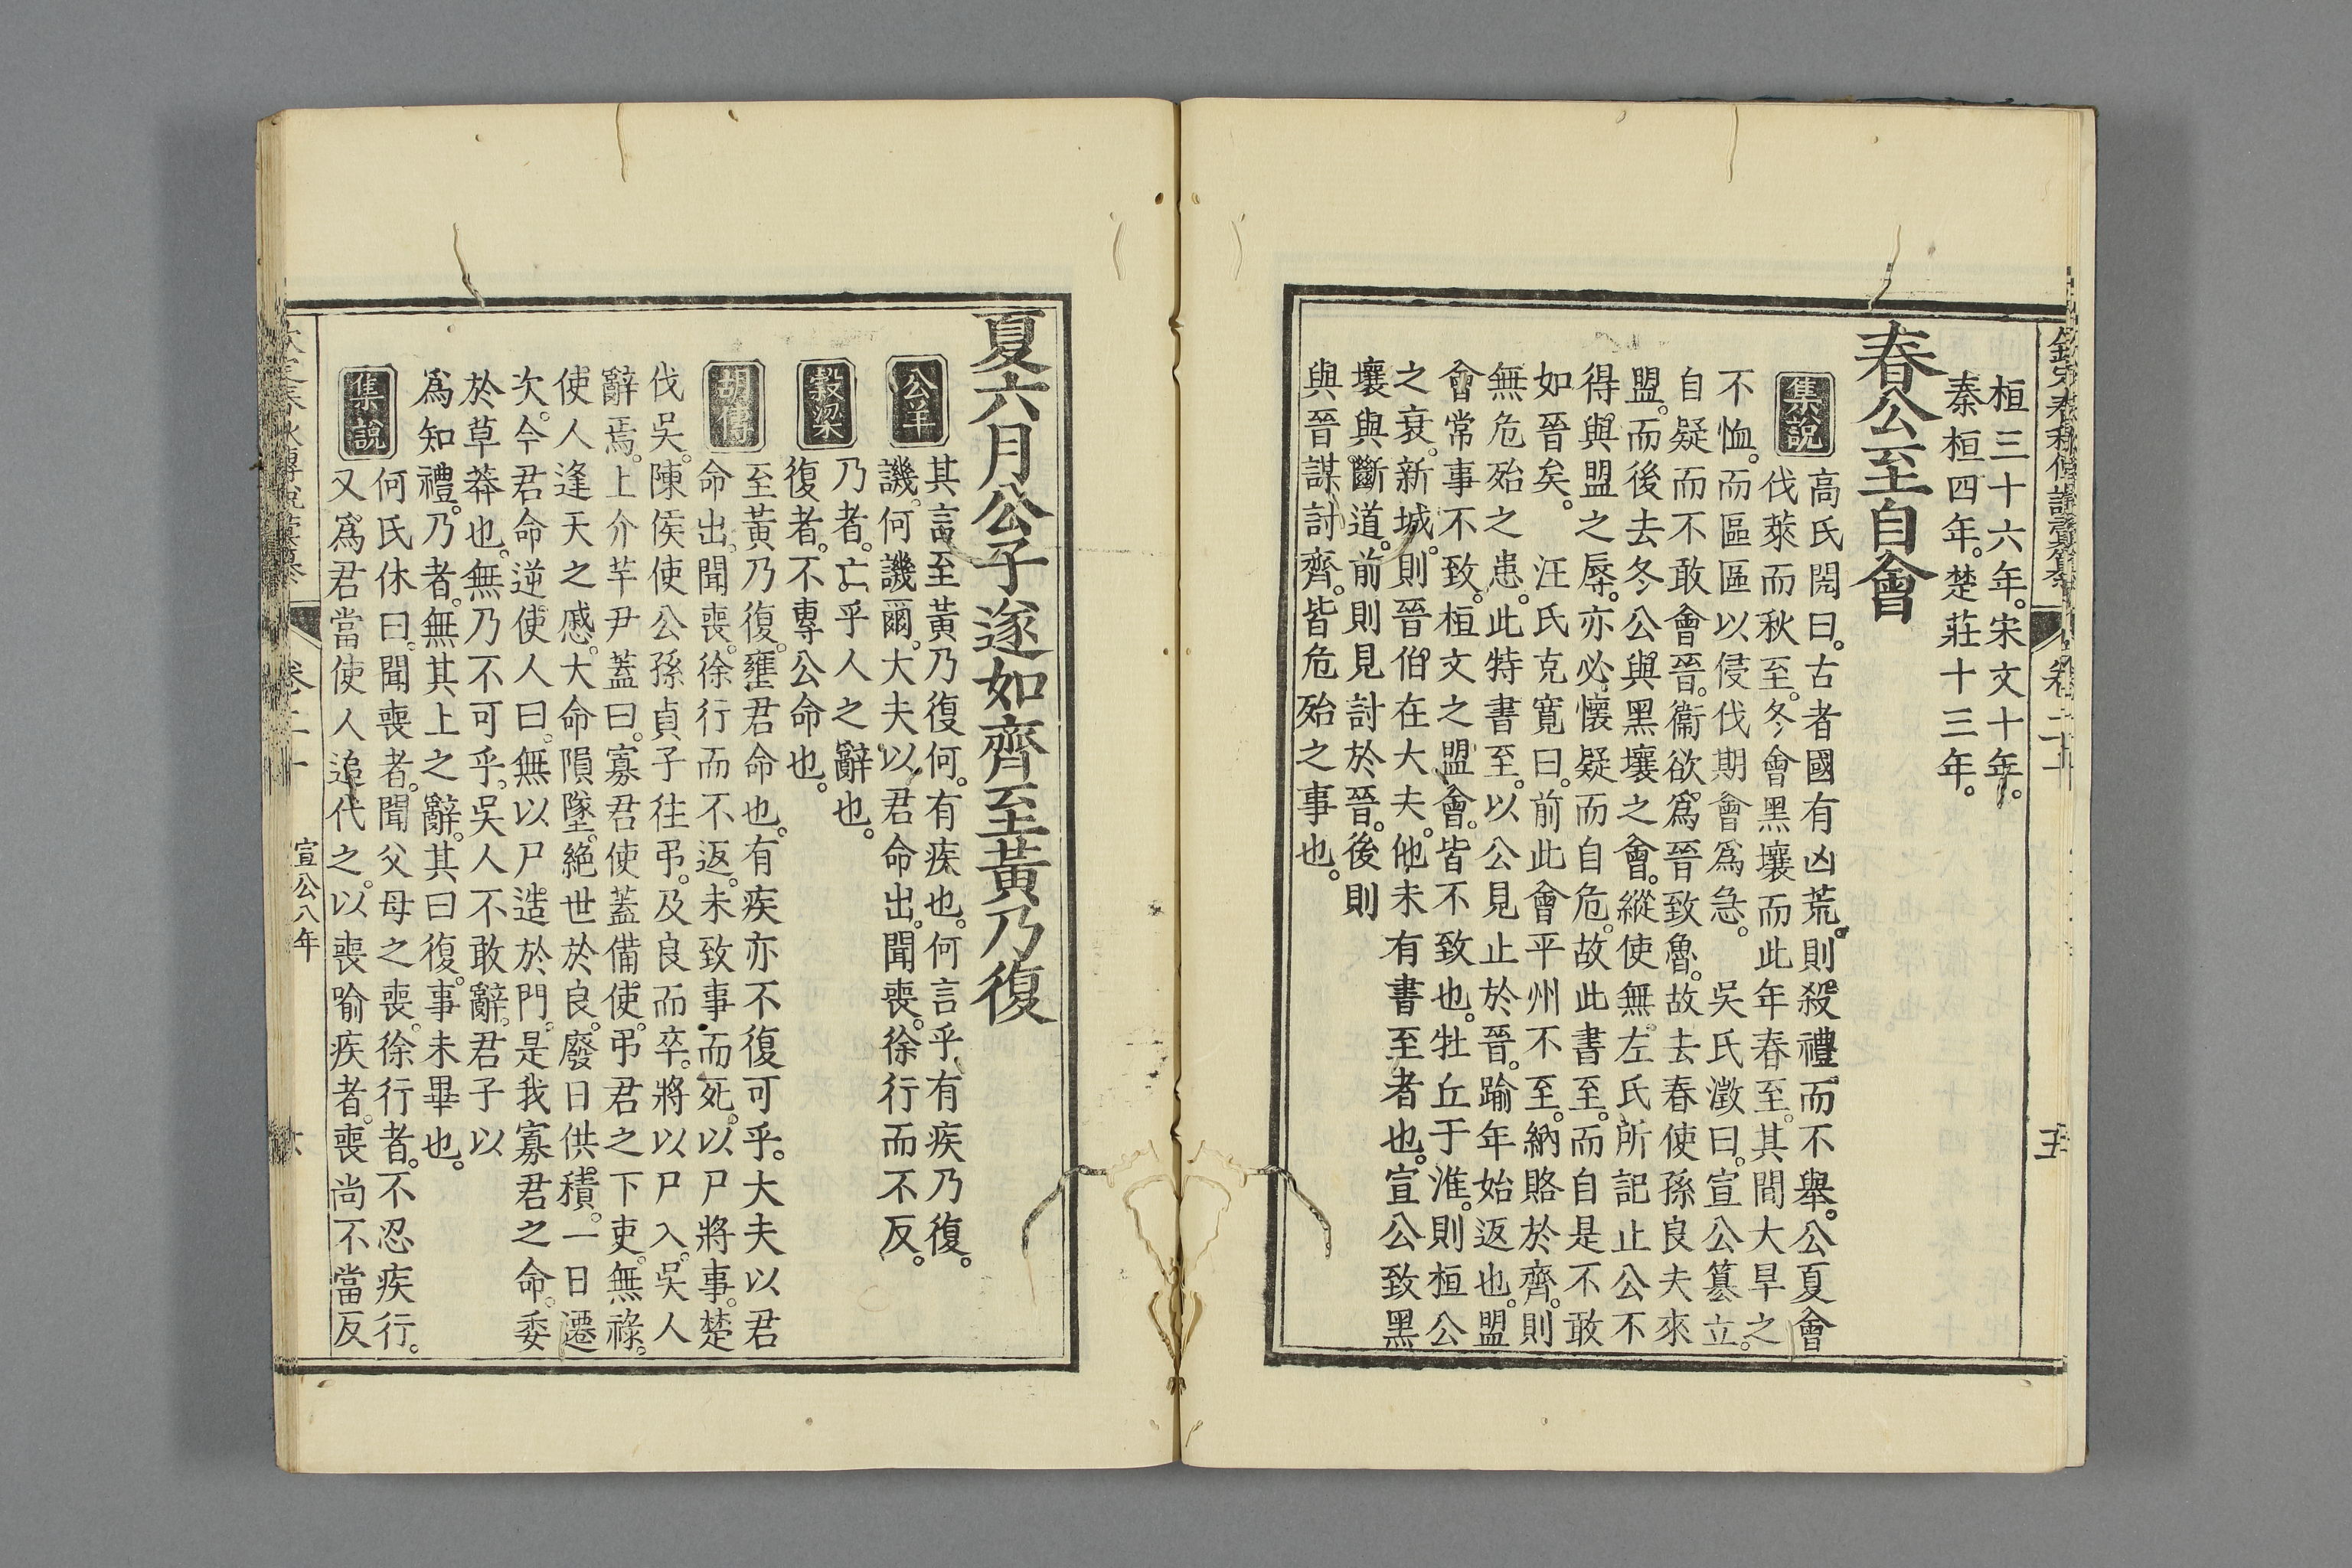 桓三十六年。宋文十年。
秦桓四年。楚莊十三年。
春公至自會
集說
高氏閌曰。古者國有凶荒。則殺禮而不舉。公夏會
伐萊而秋至。冬會黑壤而此年春至。其間大旱之
不恤。而區區以侵伐期會爲急。 吳氏澂曰。宣公簒立。
自疑而不敢會晉。衞欲爲晉致魯。故去春使孫良夫來
盟。而後去冬公與黑壤之會。縱使無左氏所記止公不
得與盟之辱。亦必懷疑而自危。故此書至。而自是不敢
如晉矣。 汪氏克寬曰。前此會平州不至。納賂於齊。則
無危殆之患。此特書至。以公見止於晉。踰年始返也。盟
會常事不致。桓文之盟會。皆不致也。牡丘于淮。則桓公
之衰。新城。則晉伯在大夫。他未有書至者也。宣公致黑
壤與斷道。前則見討於晉。後則
與晉謀討齊。皆危殆之事也。
卷二十一
五
夏六月公子遂如齊至黃乃復
公羊
其言至黃乃復何。有疾也。何言乎有疾乃復。
譏。何譏爾。大夫以君命出。聞喪。徐行而不反。
穀梁
乃者。亡乎人之辭也。
復者。不專公命也。
胡傳
至黃乃復。壅君命也。有疾亦不復可乎。大夫以君
命出。聞喪。徐行而不返。未致事而死。以尸將事。楚
伐吳。陳侯使公孫貞子往弔。及良而卒。將以尸入。吳人
辭焉。上介芊尹蓋曰。寡君使蓋備使。弔君之下吏。無祿。
使人逢天之慼。大命隕墜。絶世於良。廢日供積。一日遷
次。今君命逆使人曰。無以尸造於門。是我寡君之命。委
於草莽也。無乃不可乎。吳人不敢辭。君子以
爲知禮。乃者。無其上之辭。其曰復。事未畢也。
集說
何氏休曰。聞喪者。聞父母之喪。徐行者。不忍疾行。
又爲君當使人追代之。以喪喻疾者。喪尚不當反
卷二十一
宣公八年
六